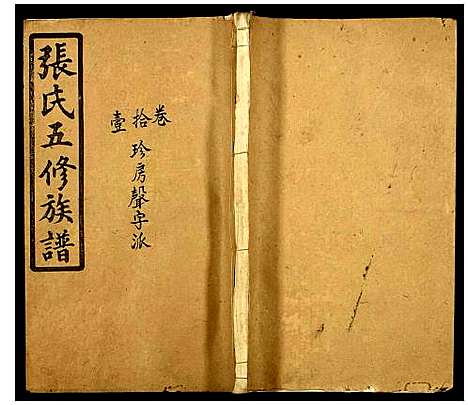 張氏五修族譜
卷
拾
壹
珍房聲字派